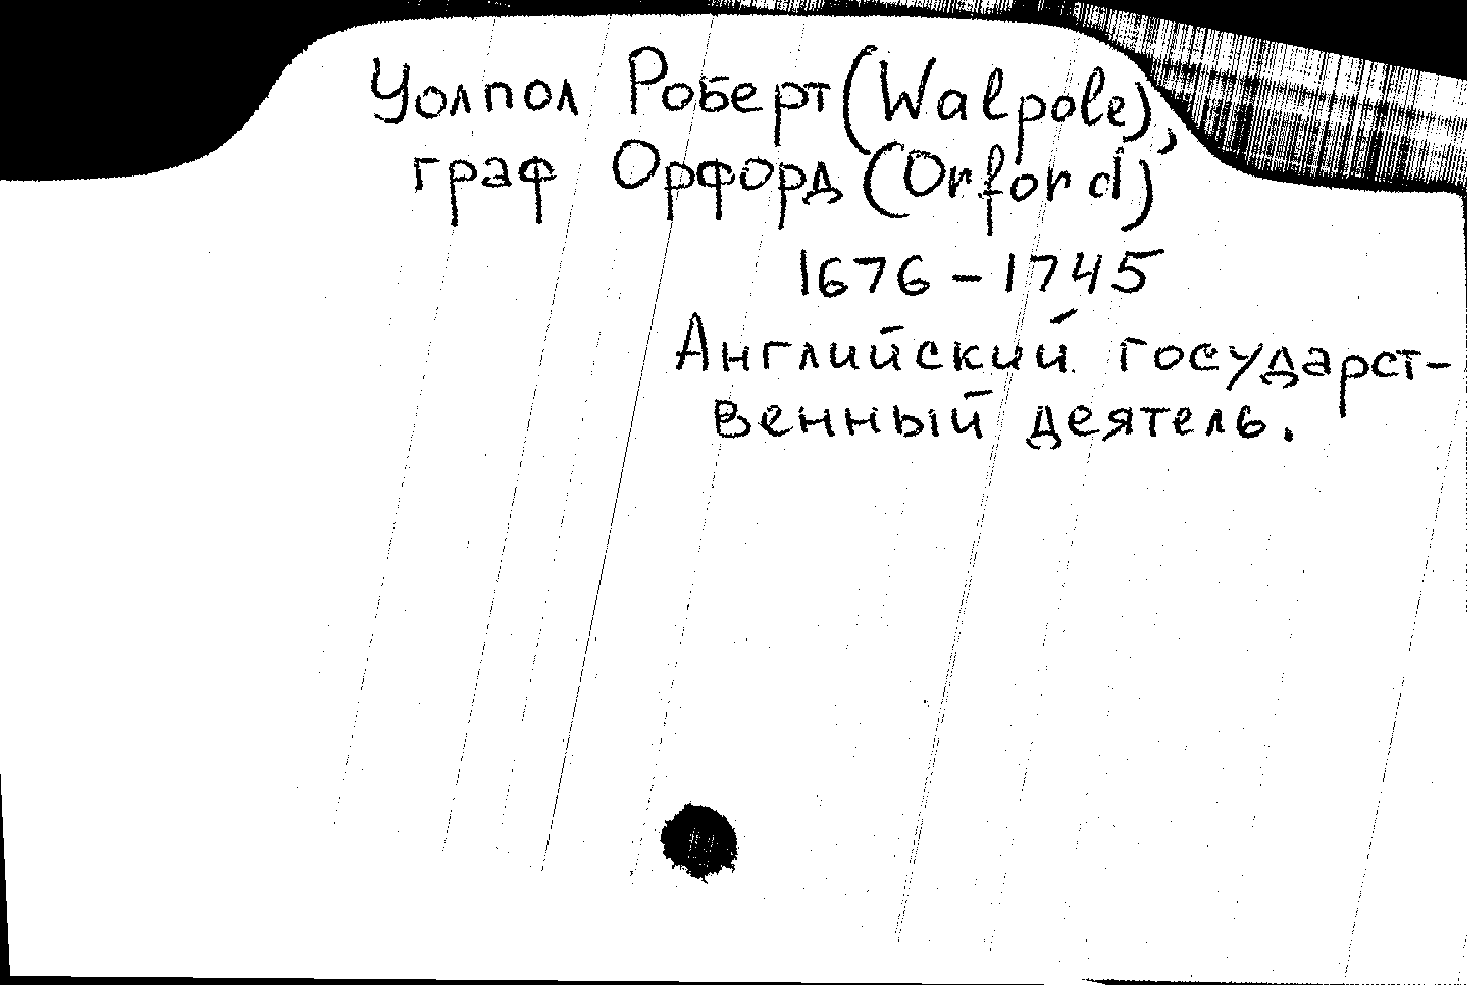 Уолпол Роберт (Walpole),
граф Орфорд (Orford)
1676 – 1745
Английский государст-
венный деятель.